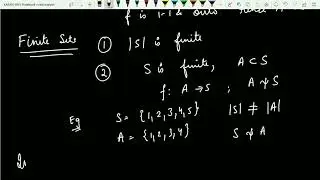 f is 1-1 & onto
Finite Sets ① |S| is finite
② S is finite, A ⊂ S
f: A → S ; A ≁ S
Eg S = {1,2,3,4,5} |S| ≠ |A|
A = {1,2,3,4} S ≁ A